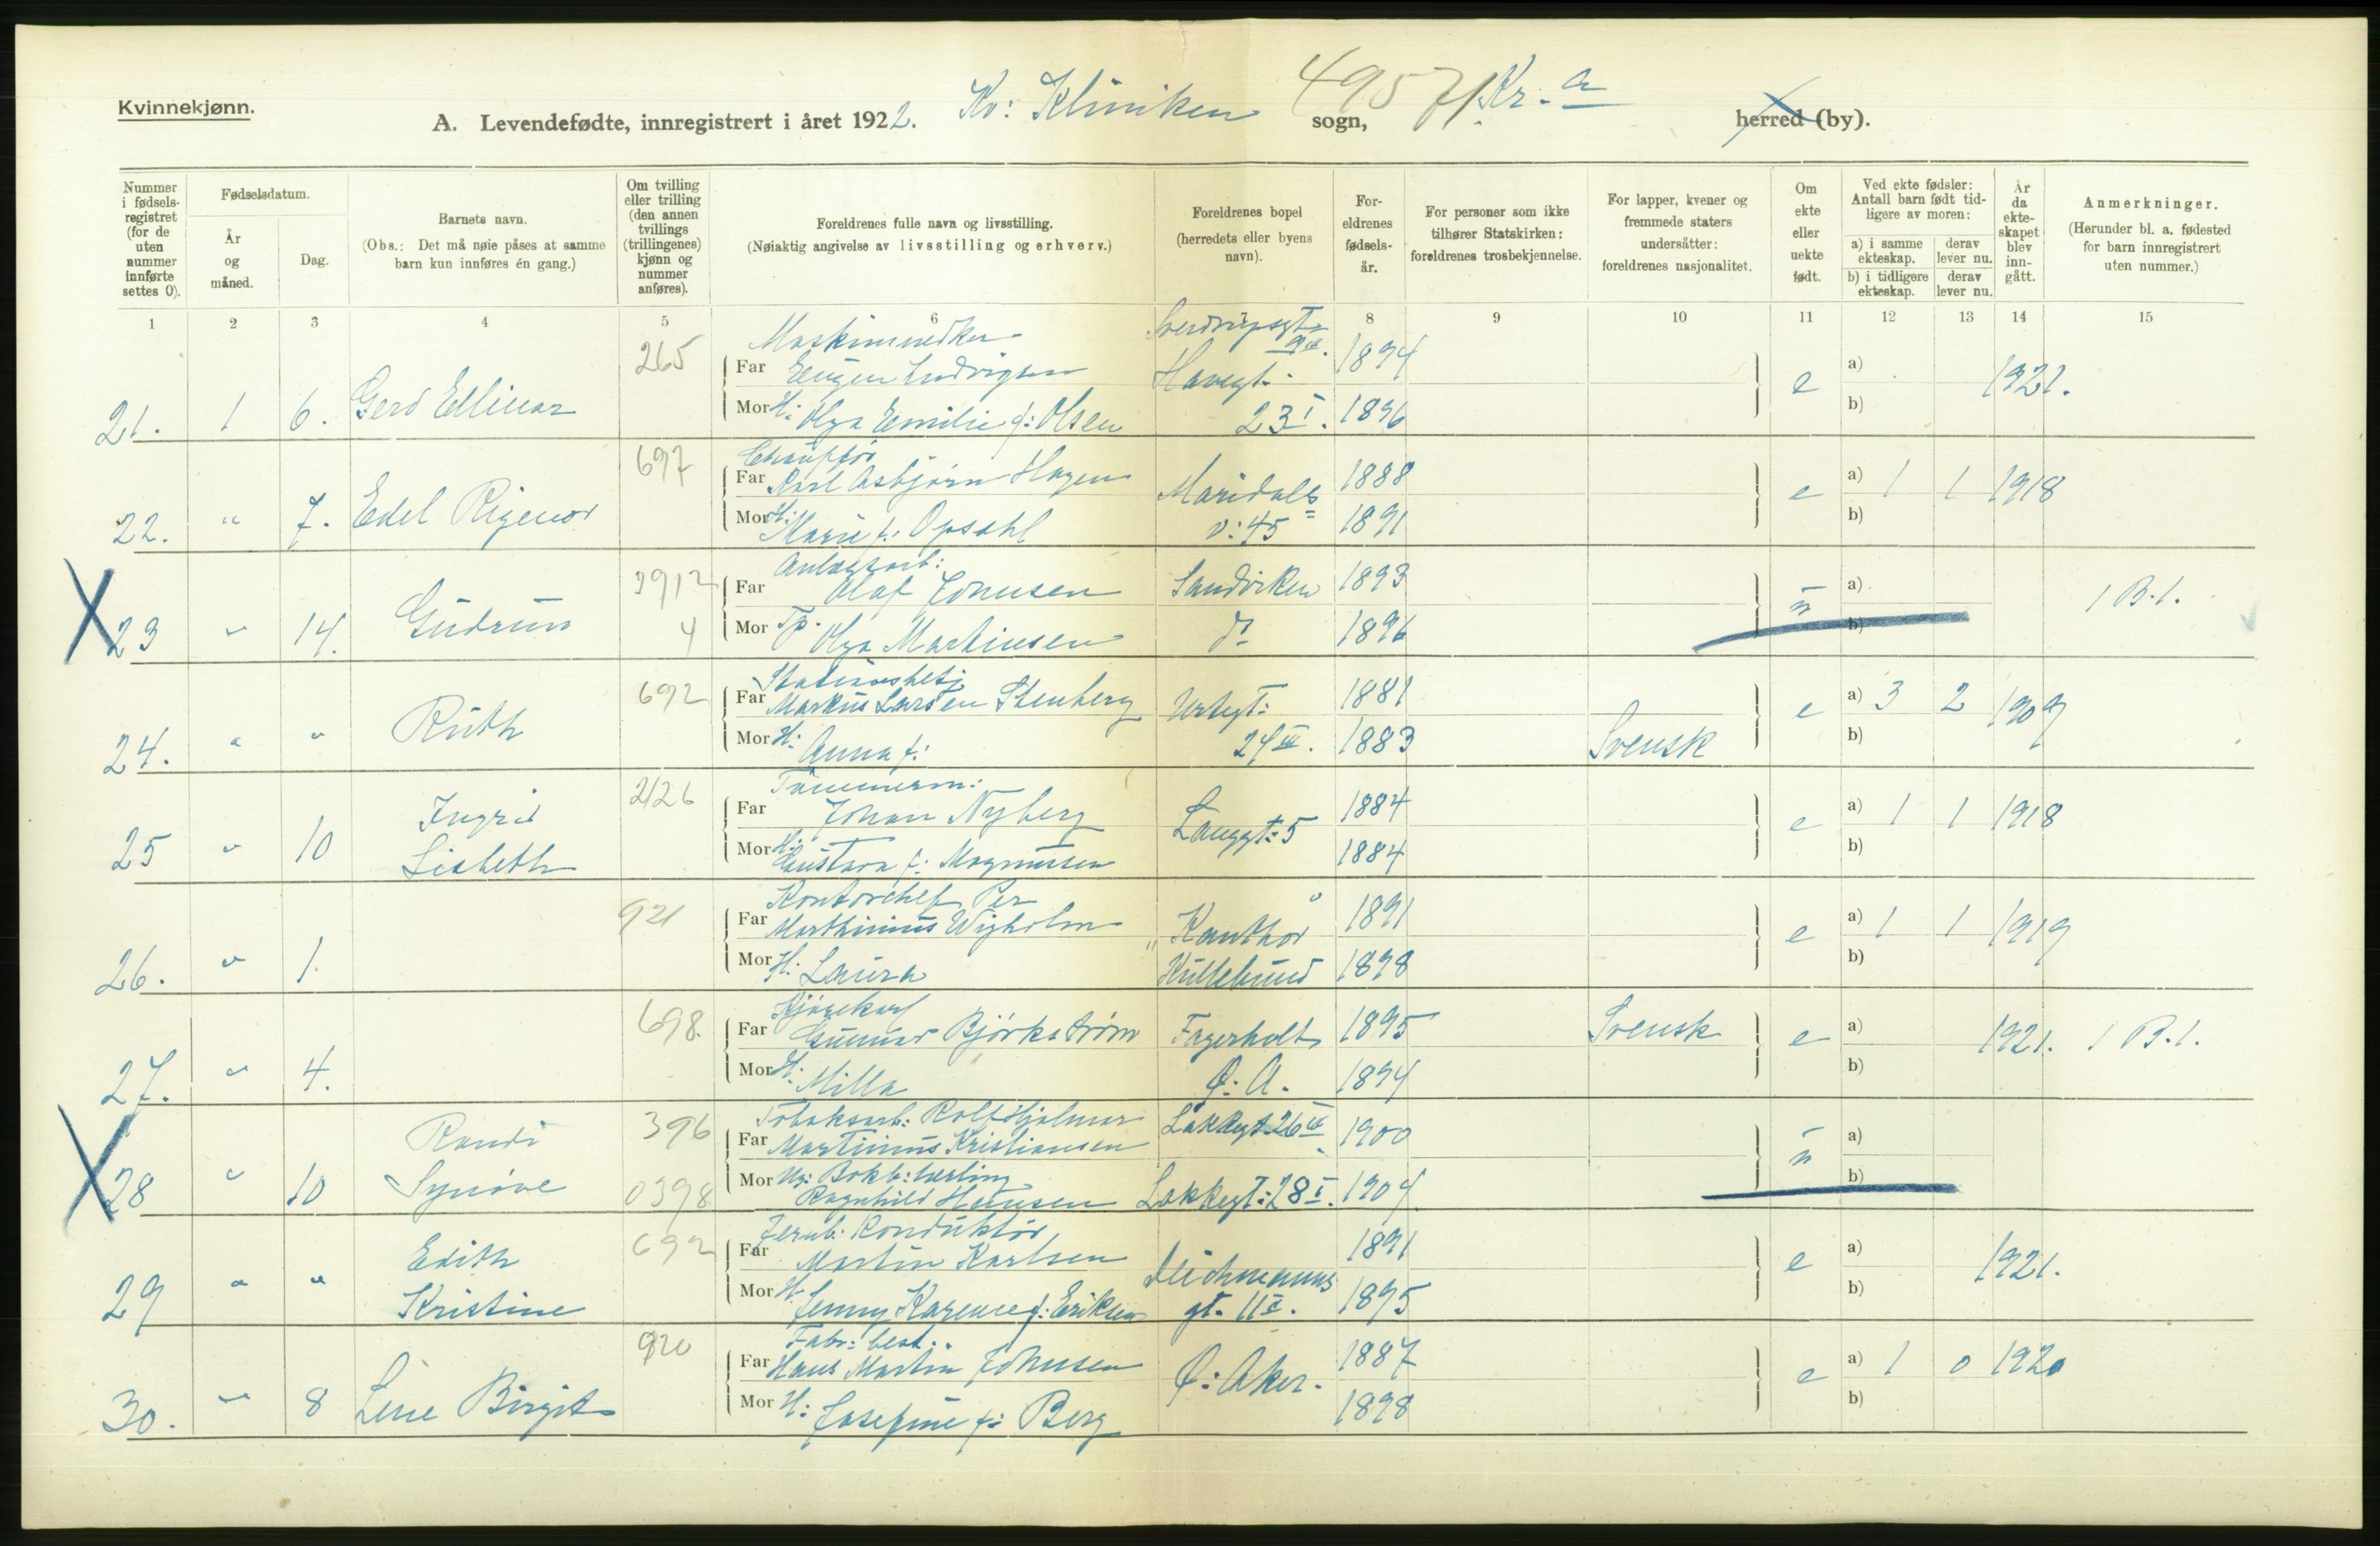 Kvinnekjønn.
A. Levendefødte, innregistrert i året 1922. Kv: Kliniken sogn, 4957/ Kr.a herred (by).
Nummer i fødselsregistret (for de uten nummer innførte settes 0).
Fødselsdatum.
År og måned.
Dag.
Barnets navn.
(Obs.: Det må nøie påses at samme barn kun innføres én gang.)
Om tvilling eller trilling (den annen tvillings (trillingenes) kjønn og nummer anføres).
Foreldrenes fulle navn og livsstilling.
(Nøiaktig angivelse av livsstilling og erhverv.)
Foreldrenes bopel (herredets eller byens navn).
Foreldrenes fødselsår.
For personer som ikke tilhører Statskirken: foreldrenes trosbekjennelse.
For lapper, kvener og fremmede staters undersåtter: foreldrenes nasjonalitet.
Om ekte eller uekte født.
Ved ekte fødsler: Antall barn født tidligere av moren:
a) i samme ekteskap.
derav lever nu.
b) i tidligere ekteskap.
derav lever nu.
År da ekteskapet blev inngått.
Anmerkninger.
(Herunder bl. a. fødested for barn innregistrert uten nummer.)
1 2 3 4 5 6 7 8 9 10 11 12 13 14 15
265 Sverdrupsgt
21. 1 6. Gerd Ellinor Far Eugen Ludvigsen 1894 e a) 1921.
Havegt.
Mor H: Olga Emilie f: Olsen 23 I. 1896 b)
697 Chauffør
22. " 7. Edel Far Karl Asbjørn Hagen Maridals 1888 e a) 1 1 1918
Mor H: Marie f: Opsahl v: 45 1891 b)
3912 Anlægsarb:
23 " 14. Gudrun Far Olaf Johnsen Sandviken 1893 u a) 1 B.1.
4 Mor Tp. Olga Martinsen do 1896 b)
692
24. " " Ruth Far Markus Larsen Stenberg Urtegt: 1881 e a) 3 2 1909
Mor H: Anna f: 24 III. 1883 Svensk b)
2126 Tømmerm:
25 " 10 Ingrid Far Johan Nyberg Langgt: 5 1884 e a) 1 1 1918
Lisbeth Mor H: Gustava f: Magnussen 1884 b)
921 Kontorchef Per
26. " 1. Far Marthinius Wigholm 1891 e a) 1 1 1919
Mor H: Laura 1898 b)
698. Kjørekarl
27. " 4. Far Gunnar Bjørkstrøm Fagerholt 1895 Svensk e a) 1921. 1 B.1.
Mor H: Milla Ø. A. 1894 b)
396 Tobaksarb: Rolf Hjalmar
28 " 10 Randi Far Martinius Kristiansen Lakkegt 26 1900 u a)
Synøve 0398 Mor Ug: Bokb: lærling
Ragnhild Hansen Lakkegt: 28 I. 1904 b)
692 Jernb: Konduktør
29 " " Edith Far Martin Karlsen Deichmanns 1891 e a) 1921.
Kristine Mor H. Jenny Karence f: Eriksen gt. 11 c. 1895 b)
920 Fabr: best.
30. " 8 Lene Birgit Far Hans Martin Johnsen Ø: Aker. 1887 e a) 1 0 1920
Mor H: Josefine f: Berg 1898 b)